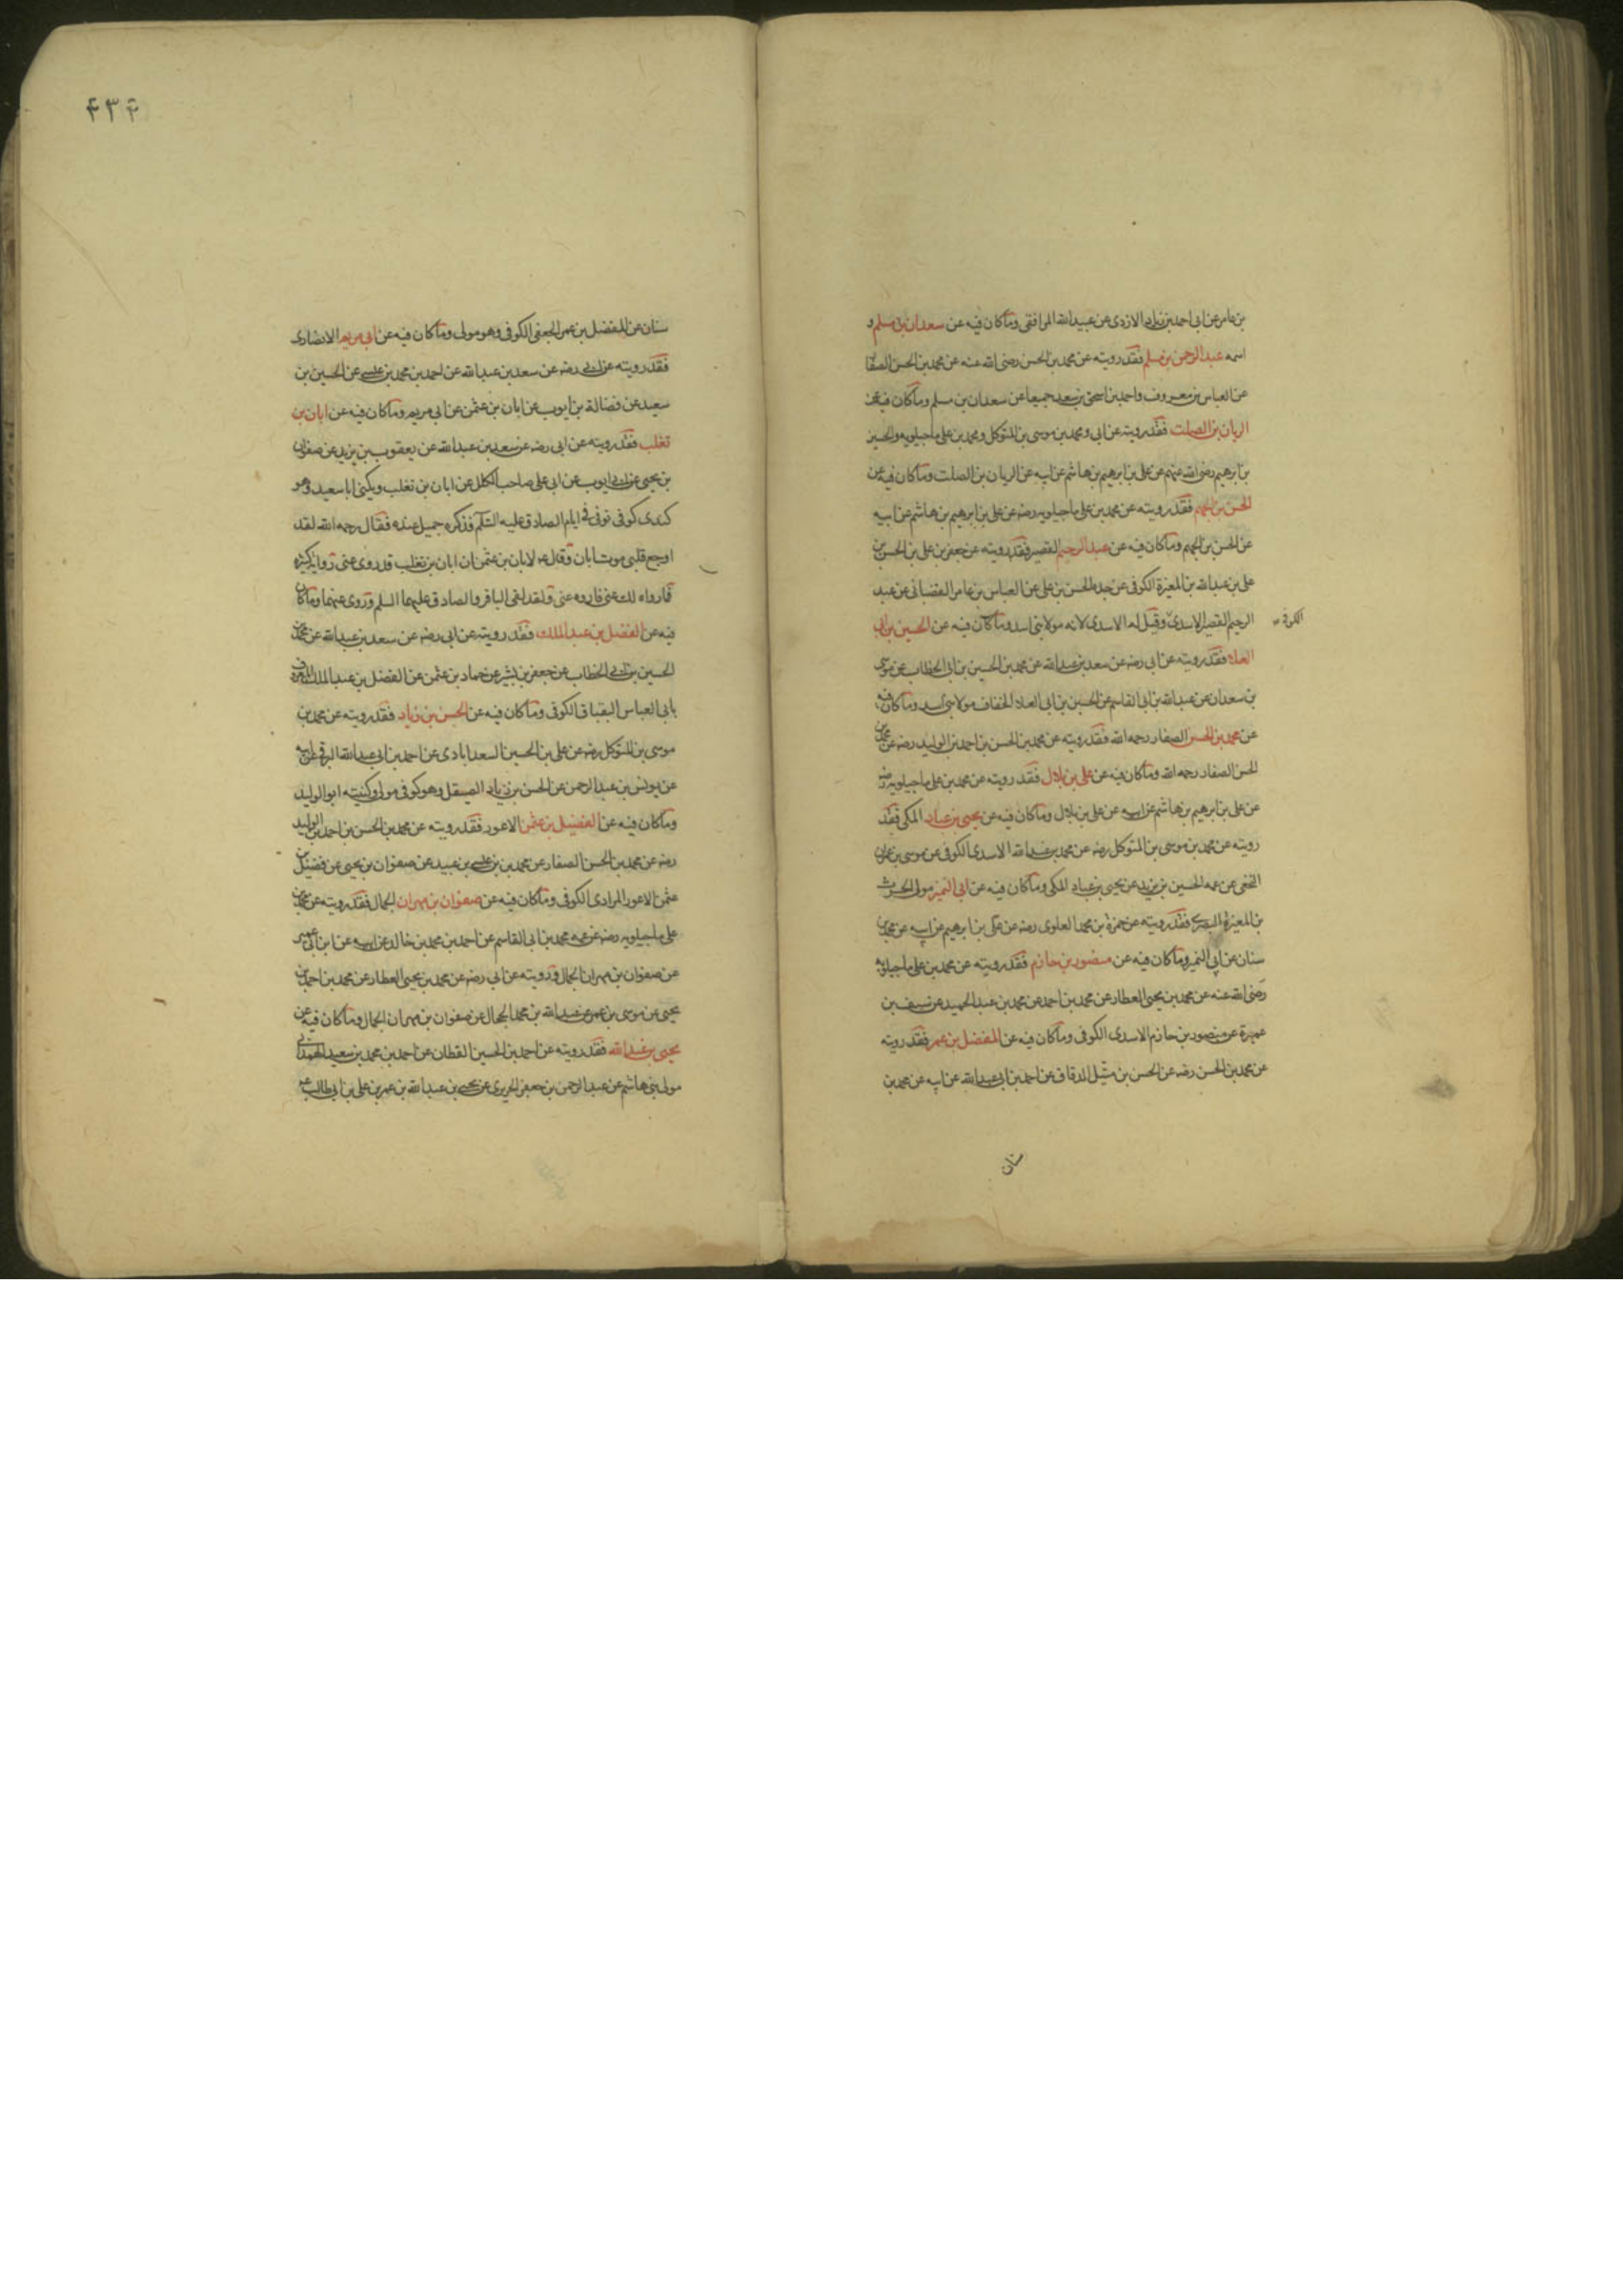 بن عامر عن ابی احمد بن زیاد الازدی عن عبید الله المرافقی وما کان فیه عن سعدان بن مسلم و
اسمه عبد الرحمن بن مسلم فقد رویته عن محمد بن الحسن رضی الله عنه عن محمد بن الحسن الصفار
عن العباس بن معروف واحمد بن اسحق بن سعد جمیعا عن سعدان بن مسلم وما کان فیه عن
الریان بن الصلت فقد رویته عن ابی ومحمد بن موسی بن المتوکل ومحمد بن علی ماجیلویه والحسین
بن ابرهیم رضی الله عنهم عن علی بن ابرهیم بن هاشم عن ابیه عن الریان بن الصلت وما کان فیه عن
الحسن بن الجهم فقد رویته عن محمد بن علی ماجیلویه رضه عن علی بن ابرهیم بن هاشم عن ابیه
عن الحسن بن الجهم وما کان فیه عن عبد الرحیم القصیر فقد رویته عن جعفر بن علی بن الحسن بن
علی بن عبد الله بن المغیرة الکوفی عن جده الحسن بن علی عن العباس بن عامر القضبانی عن عبد
الرحیم القصیر الاسدی وقیل له الاسدی لانه مولا بنی اسد وما کان فیه عن الحسین بن ابی
الکوفی
العلا فقد رویته عن ابی رضه عن سعد بن عبد الله عن محمد بن الحسین بن ابی الخطاب عن موسی
بن سعدان عن عبد الله بن ابی القاسم عن الحسین بن ابی العلاء الخفاف مولا بنی اسد وما کان فیه
عن محمد بن الحسن الصفار رحمه الله فقد رویته عن محمد بن الحسن بن احمد بن الولید رضه عن محمد بن
الحسن الصفار رحمه الله وما کان فیه عن علی بن بلال فقد رویته عن محمد بن علی ماجیلویه رضه
عن علی بن ابرهیم بن هاشم عن ابیه عن علی بن بلال وما کان فیه عن یحیی بن عباد المکی فقد
رویته عن محمد بن موسی بن المتوکل رضه عن محمد بن عبد الله الاسدی الکوفی عن موسی بن عمران
النخعی عن عمه الحسین بن یزید عن یحیی بن عباد المکی وما کان فیه عن ابی النمیر مولی الحرث
بن المغیرة النصری فقد رویته عن حمزة بن محمد العلوی رضه عن علی بن ابرهیم عن ابیه عن محمد بن
سنان عن ابی النمیر وما کان فیه عن منصور بن حازم فقد رویته عن محمد بن علی ماجیلویه
رضی الله عنه عن محمد بن یحیی العطار عن محمد بن احمد عن محمد بن عبد الحمید عن سیف بن
عمیرة عن منصور بن حازم الاسدی الکوفی وما کان فیه عن المفضل بن عمر فقد رویته
عن محمد بن الحسن رضه عن الحسن بن متیل الدقاق عن احمد بن ابی عبد الله عن ابیه عن محمد بن
سنان
۴۳۴
سنان عن المفضل بن عمر الجعفی الکوفی وهو مولی وما کان فیه عن ابی مریم الانصاری
فقد رویته عن ابی رضه عن سعد بن عبد الله عن احمد بن محمد بن عیسی عن الحسین بن
سعید عن فضالة بن ایوب عن ابان بن عثمن عن ابی مریم وما کان فیه عن ابان بن
تغلب فقد رویته عن ابی رضه عن سعد بن عبد الله عن یعقوب بن یزید عن صفوان
بن یحیی عن ابی ایوب عن ابی علی صاحب الکلل عن ابان بن تغلب ویکنی ابا سعید وهو
کندی کوفی توفی فی ایام الصادق علیه السلام فذکره جمیل عنده فقال رحمه الله لقد
اوجع قلبی موت ابان وقال ع لابان بن عثمن ان ابان بن تغلب قد روی عنی روایة کثیرة
فما رواه لک عنی فاروه عنی ولقد لقی الباقر والصادق علیهما السلم وروی عنهما وما کان
فیه عن الفضل بن عبد الملک فقد رویته عن ابی رضه عن سعد بن عبد الله عن محمد بن
الحسین بن ابی الخطاب عن جعفر بن بشیر عن حماد بن عثمن عن الفضل بن عبد الملک المعروف
بابی العباس البقباق الکوفی وما کان فیه عن الحسن بن زیاد فقد رویته عن محمد بن
موسی بن المتوکل رضه عن علی بن الحسین السعدابادی عن احمد بن ابی عبد الله البرقی عن ابیه
عن یونس بن عبد الرحمن عن الحسن بن زیاد الصیقل وهو کوفی مولی وکنیته ابو الولید
وما کان فیه عن الفضیل بن عثمن الاعور فقد رویته عن محمد بن الحسن بن احمد بن الولید
رضه عن محمد بن الحسن الصفار عن محمد بن عیسی بن عبید عن صفوان بن یحیی عن فضیل بن
عثمن الاعور المرادی الکوفی وما کان فیه عن صفوان بن مهران الجمال فقد رویته عن محمد بن
علی ماجیلویه رضه عن عمه محمد بن ابی القاسم عن احمد بن محمد بن خالد عن ابیه عن ابن ابی عمیر
عن صفوان بن مهران الجمال ورویته عن ابی رضه عن محمد بن یحیی العطار عن محمد بن احمد بن
یحیی عن موسی بن عمر عن عبد الله بن محمد الحجال عن صفوان بن مهران الجمال وما کان فیه عن
یحیی بن عبد الله فقد رویته عن احمد بن الحسین القطان عن احمد بن محمد بن سعید الهمدانی
مولی بنی هاشم عن عبد الرحمن بن جعفر الحریری عن یحیی بن عبد الله بن عمر بن علی بن ابی طالب ع